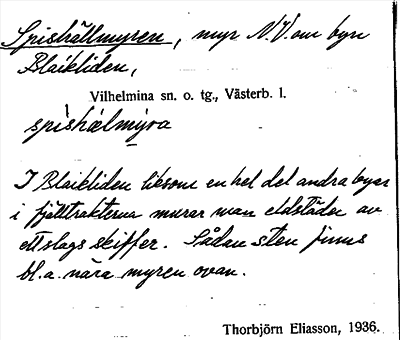 Spishällmyren, myr N.V. om byn
Blaikliden,
Vilhelmina sn. o. tg., Västerb. l.
spishælmýra
I Blaikliden liksom en hel del andra byar
i fjälltrakterna murar man eldstäder av
ett slags skiffer. Sådan sten finns
bl.a. nära myren ovan.
Thorbjörn Eliasson, 1936.